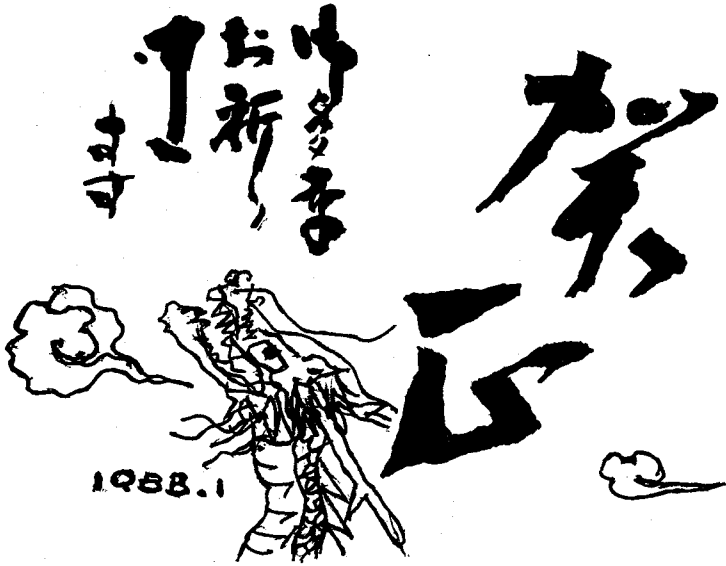 賀正
御多幸
お祈り
申し
ます
1988.1